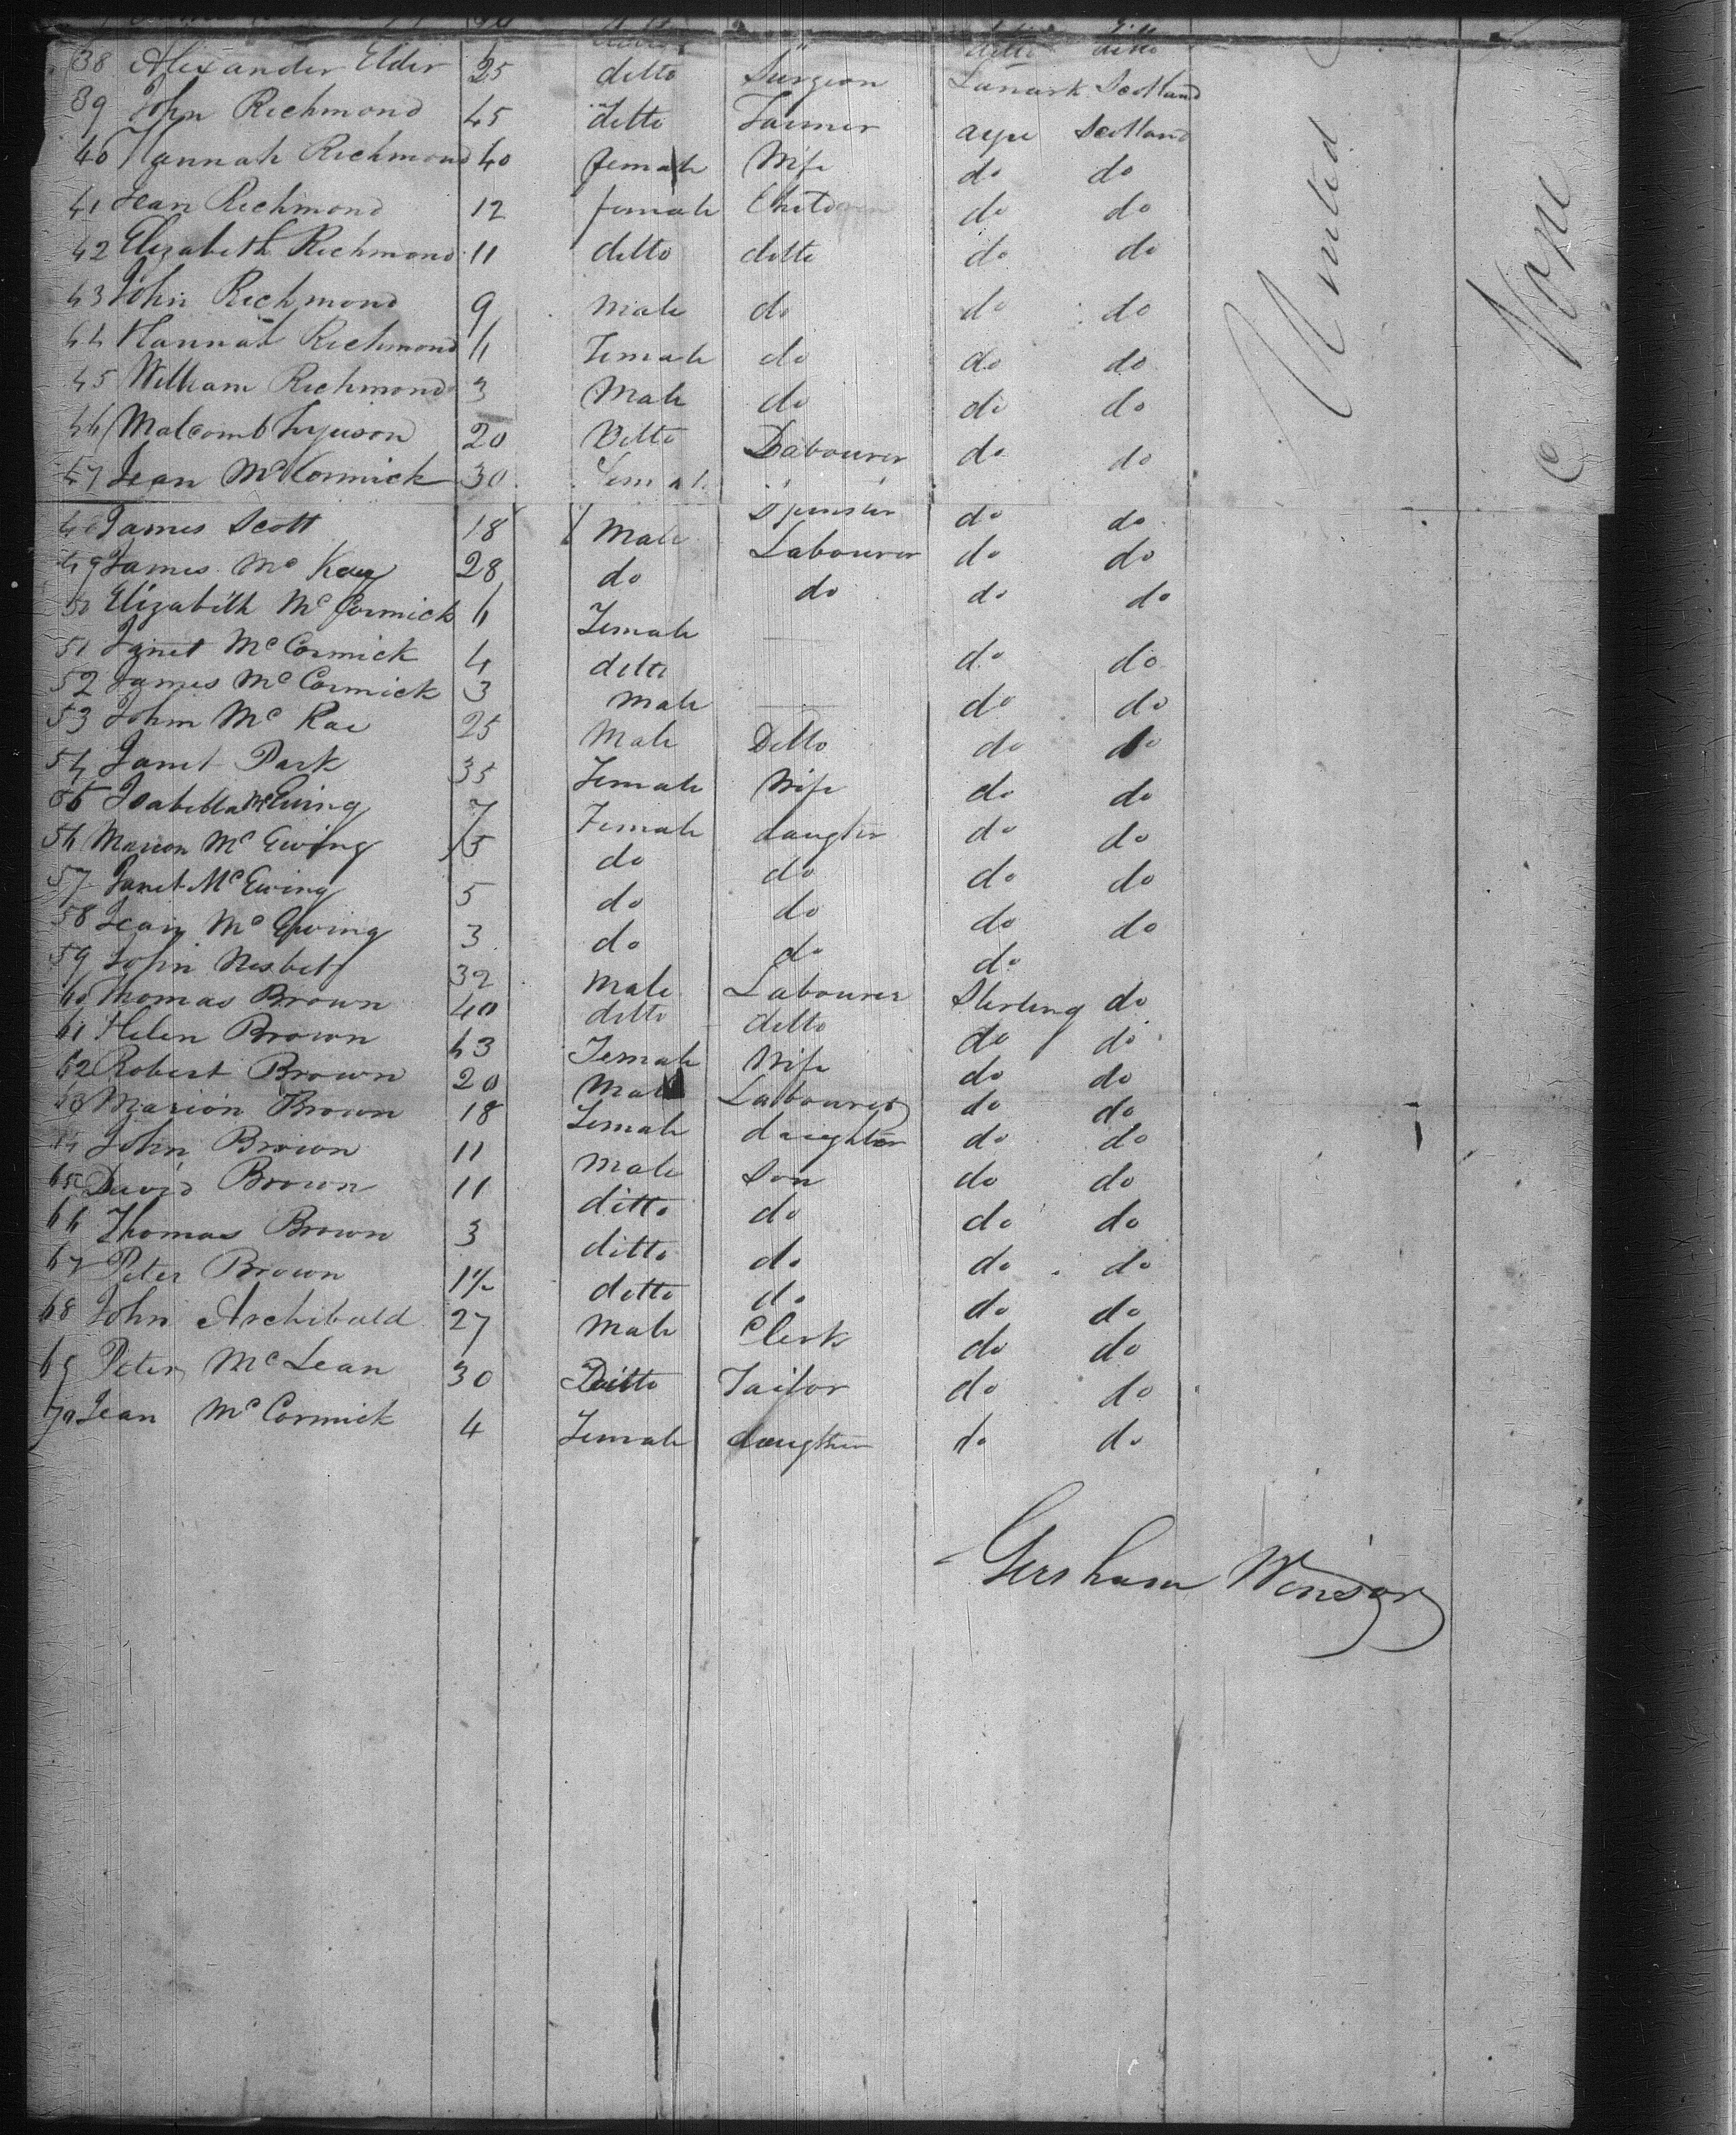 ditto ditto
38 Alexander Elder 25 ditto Surgeon Lanark Scotland
39 John Richmond 45 ditto Farmer ayr Scotland
40 Hannah Richmond 40 female Wife do do
41 Jean Richmond 12 female Children do do
42 Elizabeth Richmond 11 ditto ditto do do
43 John Richmond 9 Male do do do
44 Hannah Richmond 6 Female do do do
45 William Richmond 3 Male do do do
46 Malcomb 20 Ditto Labourer do do
47 Jean Mc Cormick 30 Female Spinster do do
48 James Scott 18 Male Labourer do do
49 James Mc Kay 28 do do do do
50 Elizabeth Mc Cormick 6 Female
51 Janet Mc Cormick 4 ditto do do
52 James Mc Cormick 3 Male do do
53 John Mc Rae 25 Male Ditto do do
54 Janet Park 35 Female Wife do do
55 Isabella Mc Ewing 7 Female daugter do do
56 Marion Mc Ewing 5 do do do do
57 Janet Mc Ewing 5 do do do do
58 Jean Mc Ewing 3 do do do
59 John Nesbet 32 Male Labourer Sterling do
60 Thomas Brown 40 ditto ditto do do
61 Helen Brown 43 Female Wife do do
62 Robert Brown 20 Male Labourer do do
63 Marion Brown 18 Female daughter do do
64 John Brown 11 Male Son do do
65 David Brown 11 ditto do do do
66 Thomas Brown 3 ditto do do do
67 Peter Brown 1½ ditto do do do
68 John Archibald 27 Male Clerk do do
69 Peter Mc Lean 30 Ditto Tailor do do
70 Jean Mc Cormick 4 Female daugther do do
United
None
Gersham Winsor